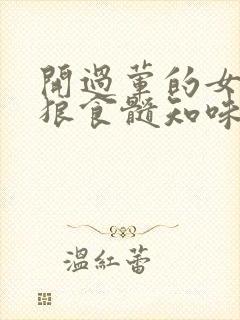 開過葷的女
狠食髓知味
溫紅蕾